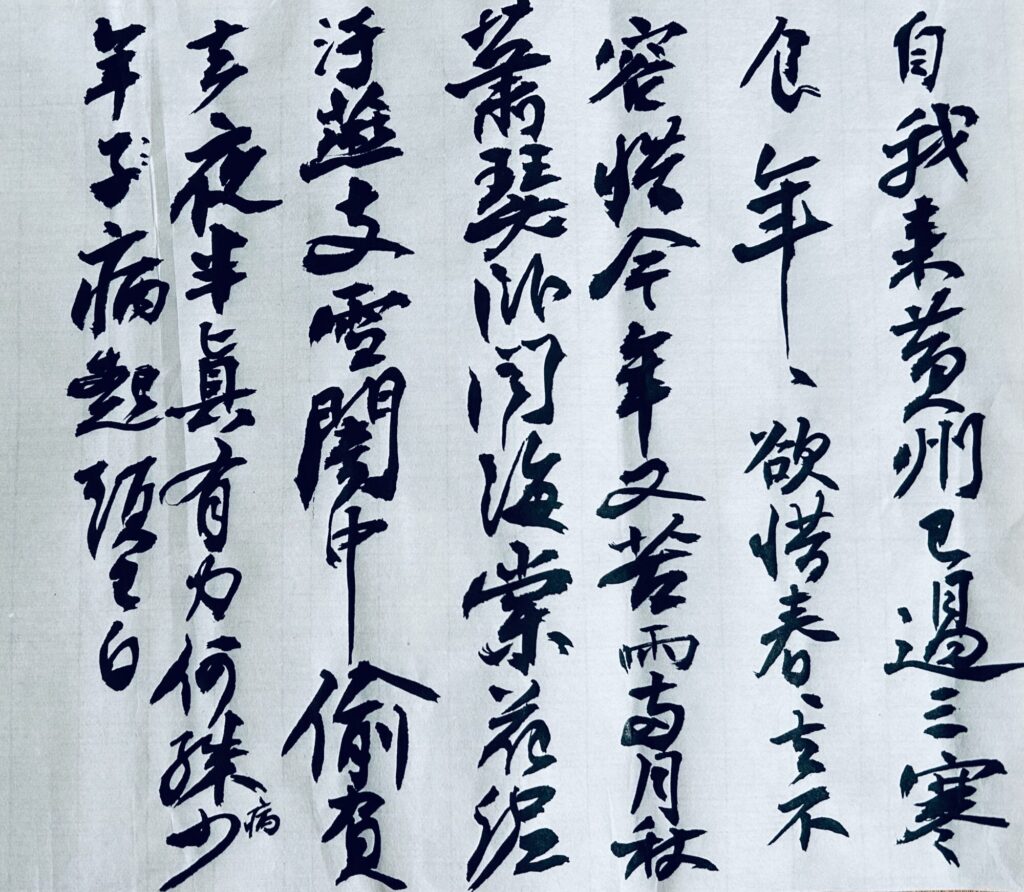 自我来黄州已過三寒
食年、欲惜春、去不
容惜今年又苦雨兩月秋
蕭瑟卧聞海棠花泥
汙燕支雪闇中偷負
去夜半真有力何殊少病
年子病起頭已白